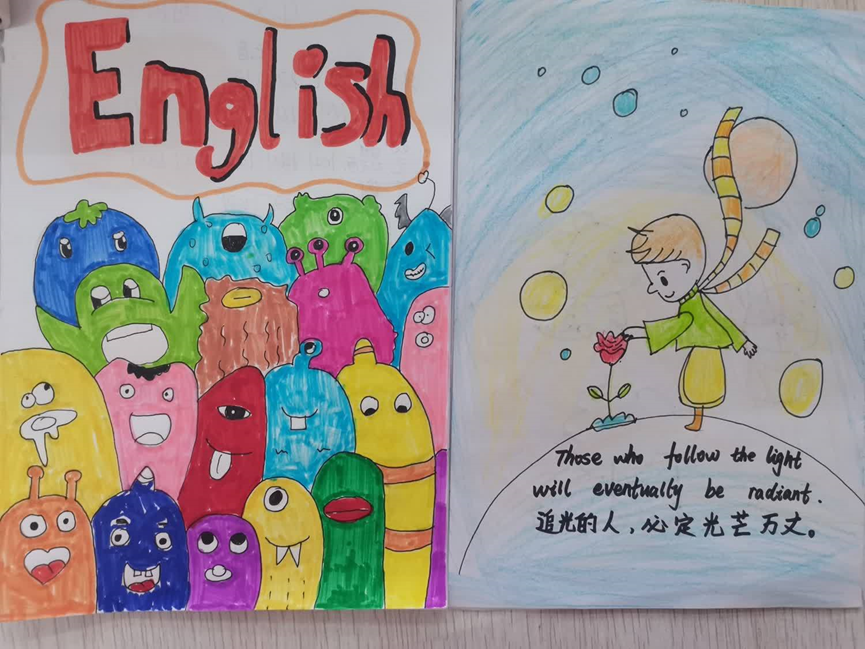 English
Those who follow the light
will eventually be radiant.
追光的人，必定光芒万丈。